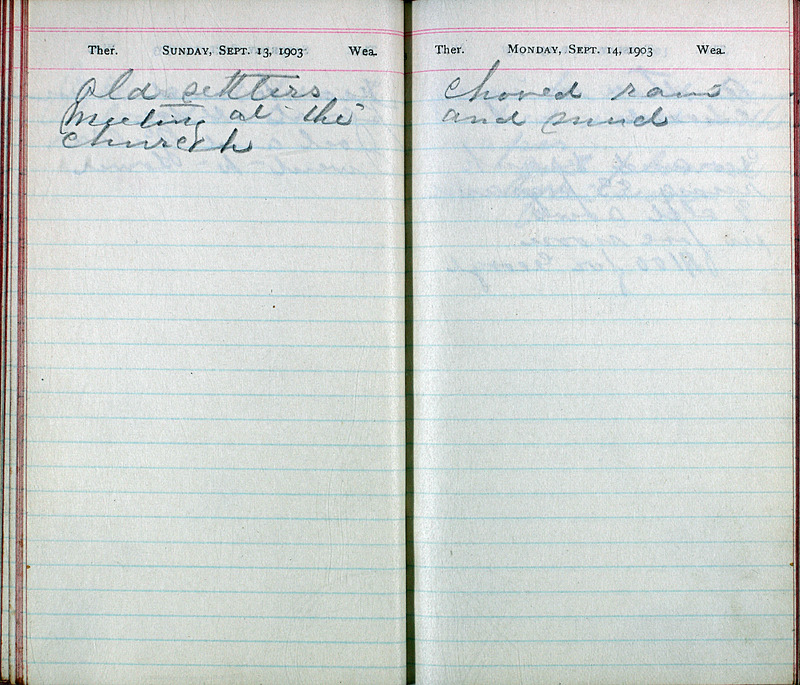 Ther. SUNDAY, SEPT. 13, 1903 Wea.
old settters
Meeting at the
church
Ther. MONDAY, SEPT. 14, 1903 Wea.
chored rain
and mud